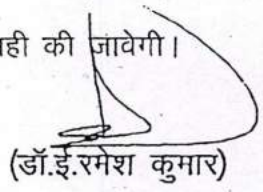 ही की जावेगी।
(डॉ.ई.रमेश कुमार)